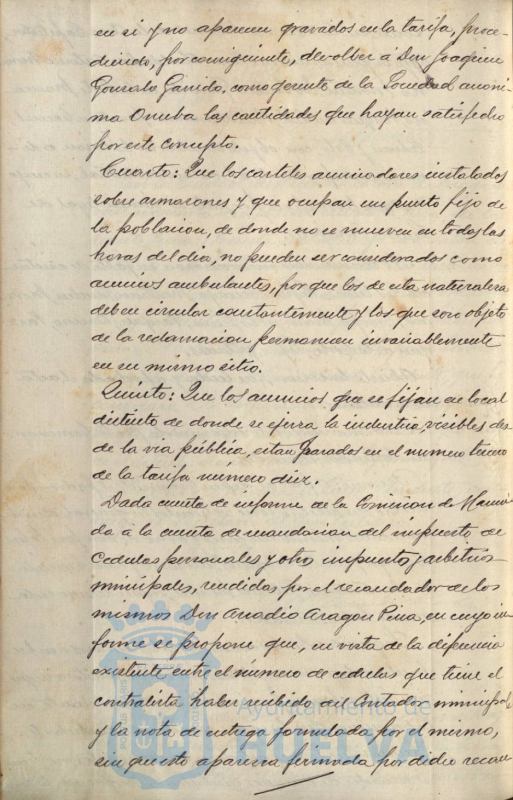 en si y no aparecen gravados en la tarifa, proce-
diendo, por consiguiente, devolber á Don Joaquin
Gonzalo Garrido, como gerente de la Sociedad anoni-
ma Onuba las cantidades que hayan satisfecho
por este concepto.
Cuarto: Que los carteles anunciadores instalados
sobre armazones y que ocupan un punto fijo de
la poblacion, de donde no se mueven en todas las
horas del dia, no pueden ser considerados como
anuncios ambulantes, por que los de esta naturaleza
deben circular constantemente y los que son objeto
de la reclamacion permanecen invariablemente
en su mismo sitio.
Quinto: Que los anuncios que se fijan en local
distinto de donde se ejerza la industria, visibles des-
de la via pública, estan gravados en el numero tercero
de la tarifa número diez.
Dada cuenta de informe de la Comision de Hacien-
da á la cuenta de recaudacion del impuesto de
cedulas personales y otros impuestos y arbitrios
municipales, rendidas por el recaudador de los
mismos Don Arcadio Aragon Pina, en cuyo in-
forme se propone que, en vista de la diferencia
existente entre el número de cedulas que tiene el
contratista haber recibido del Contador municipal
y la nota de entrega formulada por el mismo,
sin que esto aparezca firmada por dicho recau-
Ayuntamiento de
HUELVA